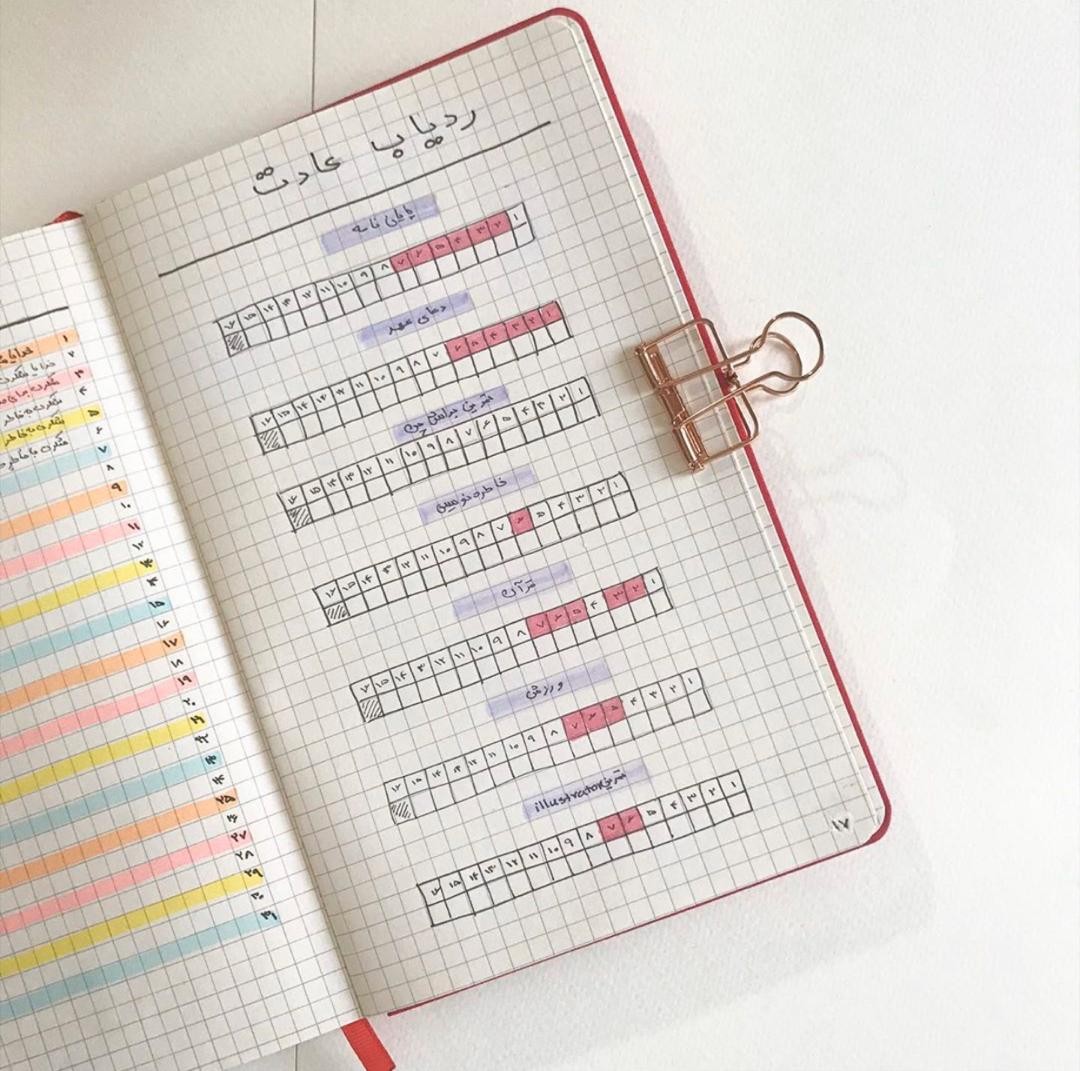 ردیاب عادت
پایان نامه
۱ ۲ ۳ ۴ ۵ ۶ ۷ ۸ ۹ ۱۰ ۱۱ ۱۲ ۱۳ ۱۴ ۱۵ ۱۶
دعای عهد
۱ ۲ ۳ ۴ ۵ ۶ ۷ ۸ ۹ ۱۰ ۱۱ ۱۲ ۱۳ ۱۴ ۱۵ ۱۶
تمرین
۱ ۲ ۳ ۴ ۵ ۶ ۷ ۸ ۹ ۱۰ ۱۱ ۱۲ ۱۳ ۱۴ ۱۵ ۱۶
خاطره نویسی
۱ ۲ ۳ ۴ ۵ ۶ ۷ ۸ ۹ ۱۰ ۱۱ ۱۲ ۱۳ ۱۴ ۱۵ ۱۶
قرآن
۱ ۲ ۳ ۴ ۵ ۶ ۷ ۸ ۹ ۱۰ ۱۱ ۱۲ ۱۳ ۱۴ ۱۵ ۱۶
ورزش
۱ ۲ ۳ ۴ ۵ ۶ ۷ ۸ ۹ ۱۰ ۱۱ ۱۲ ۱۳ ۱۴ ۱۵ ۱۶
تمرین illustrator
۱ ۲ ۳ ۴ ۵ ۶ ۷ ۸ ۹ ۱۰ ۱۱ ۱۲ ۱۳ ۱۴ ۱۵ ۱۶
۱۷
۱
۲
۳
۴
۵
۶
۷
۸
۹
۱۰
۱۱
۱۲
۱۳
۱۴
۱۵
۱۶
۱۷
۱۸
۱۹
۲۰
۲۱
۲۲
۲۳
۲۴
۲۵
۲۶
۲۷
۲۸
۲۹
۳۰
۳۱